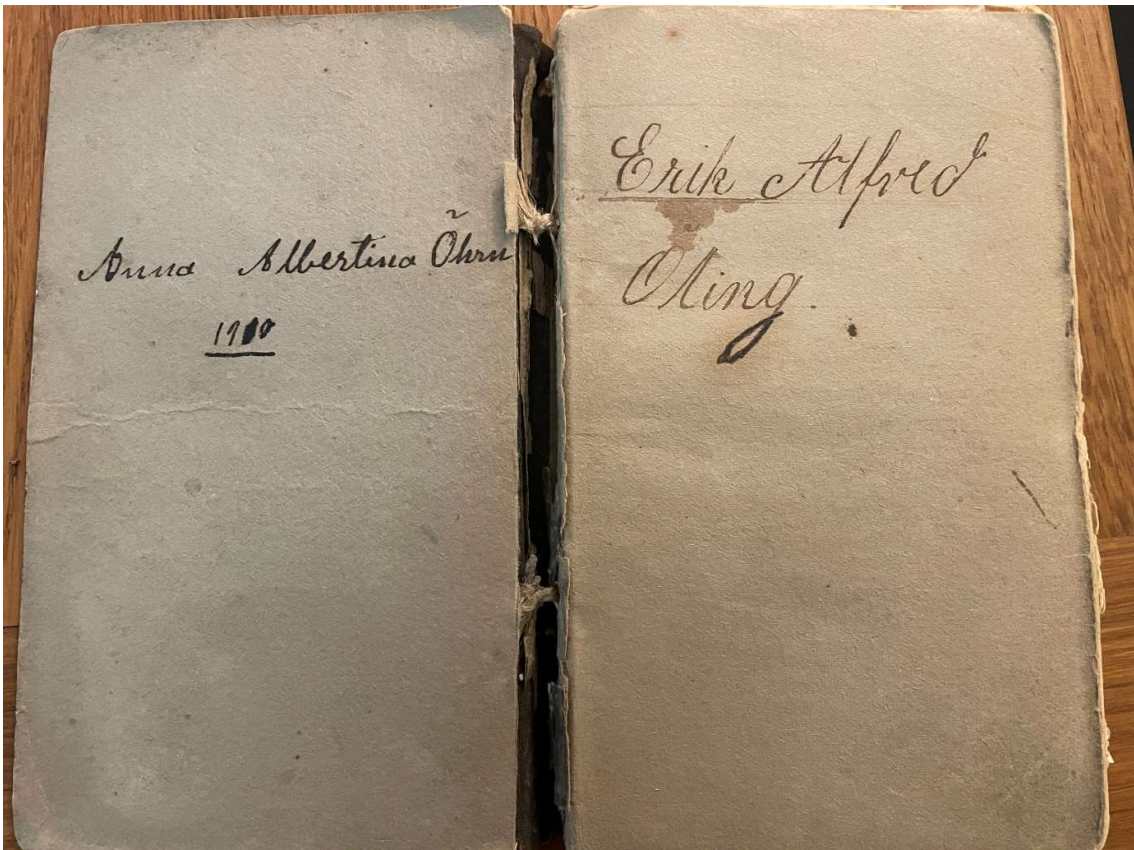 Anna Albertina Öhrn
1910
Erik Alfred
Öling.